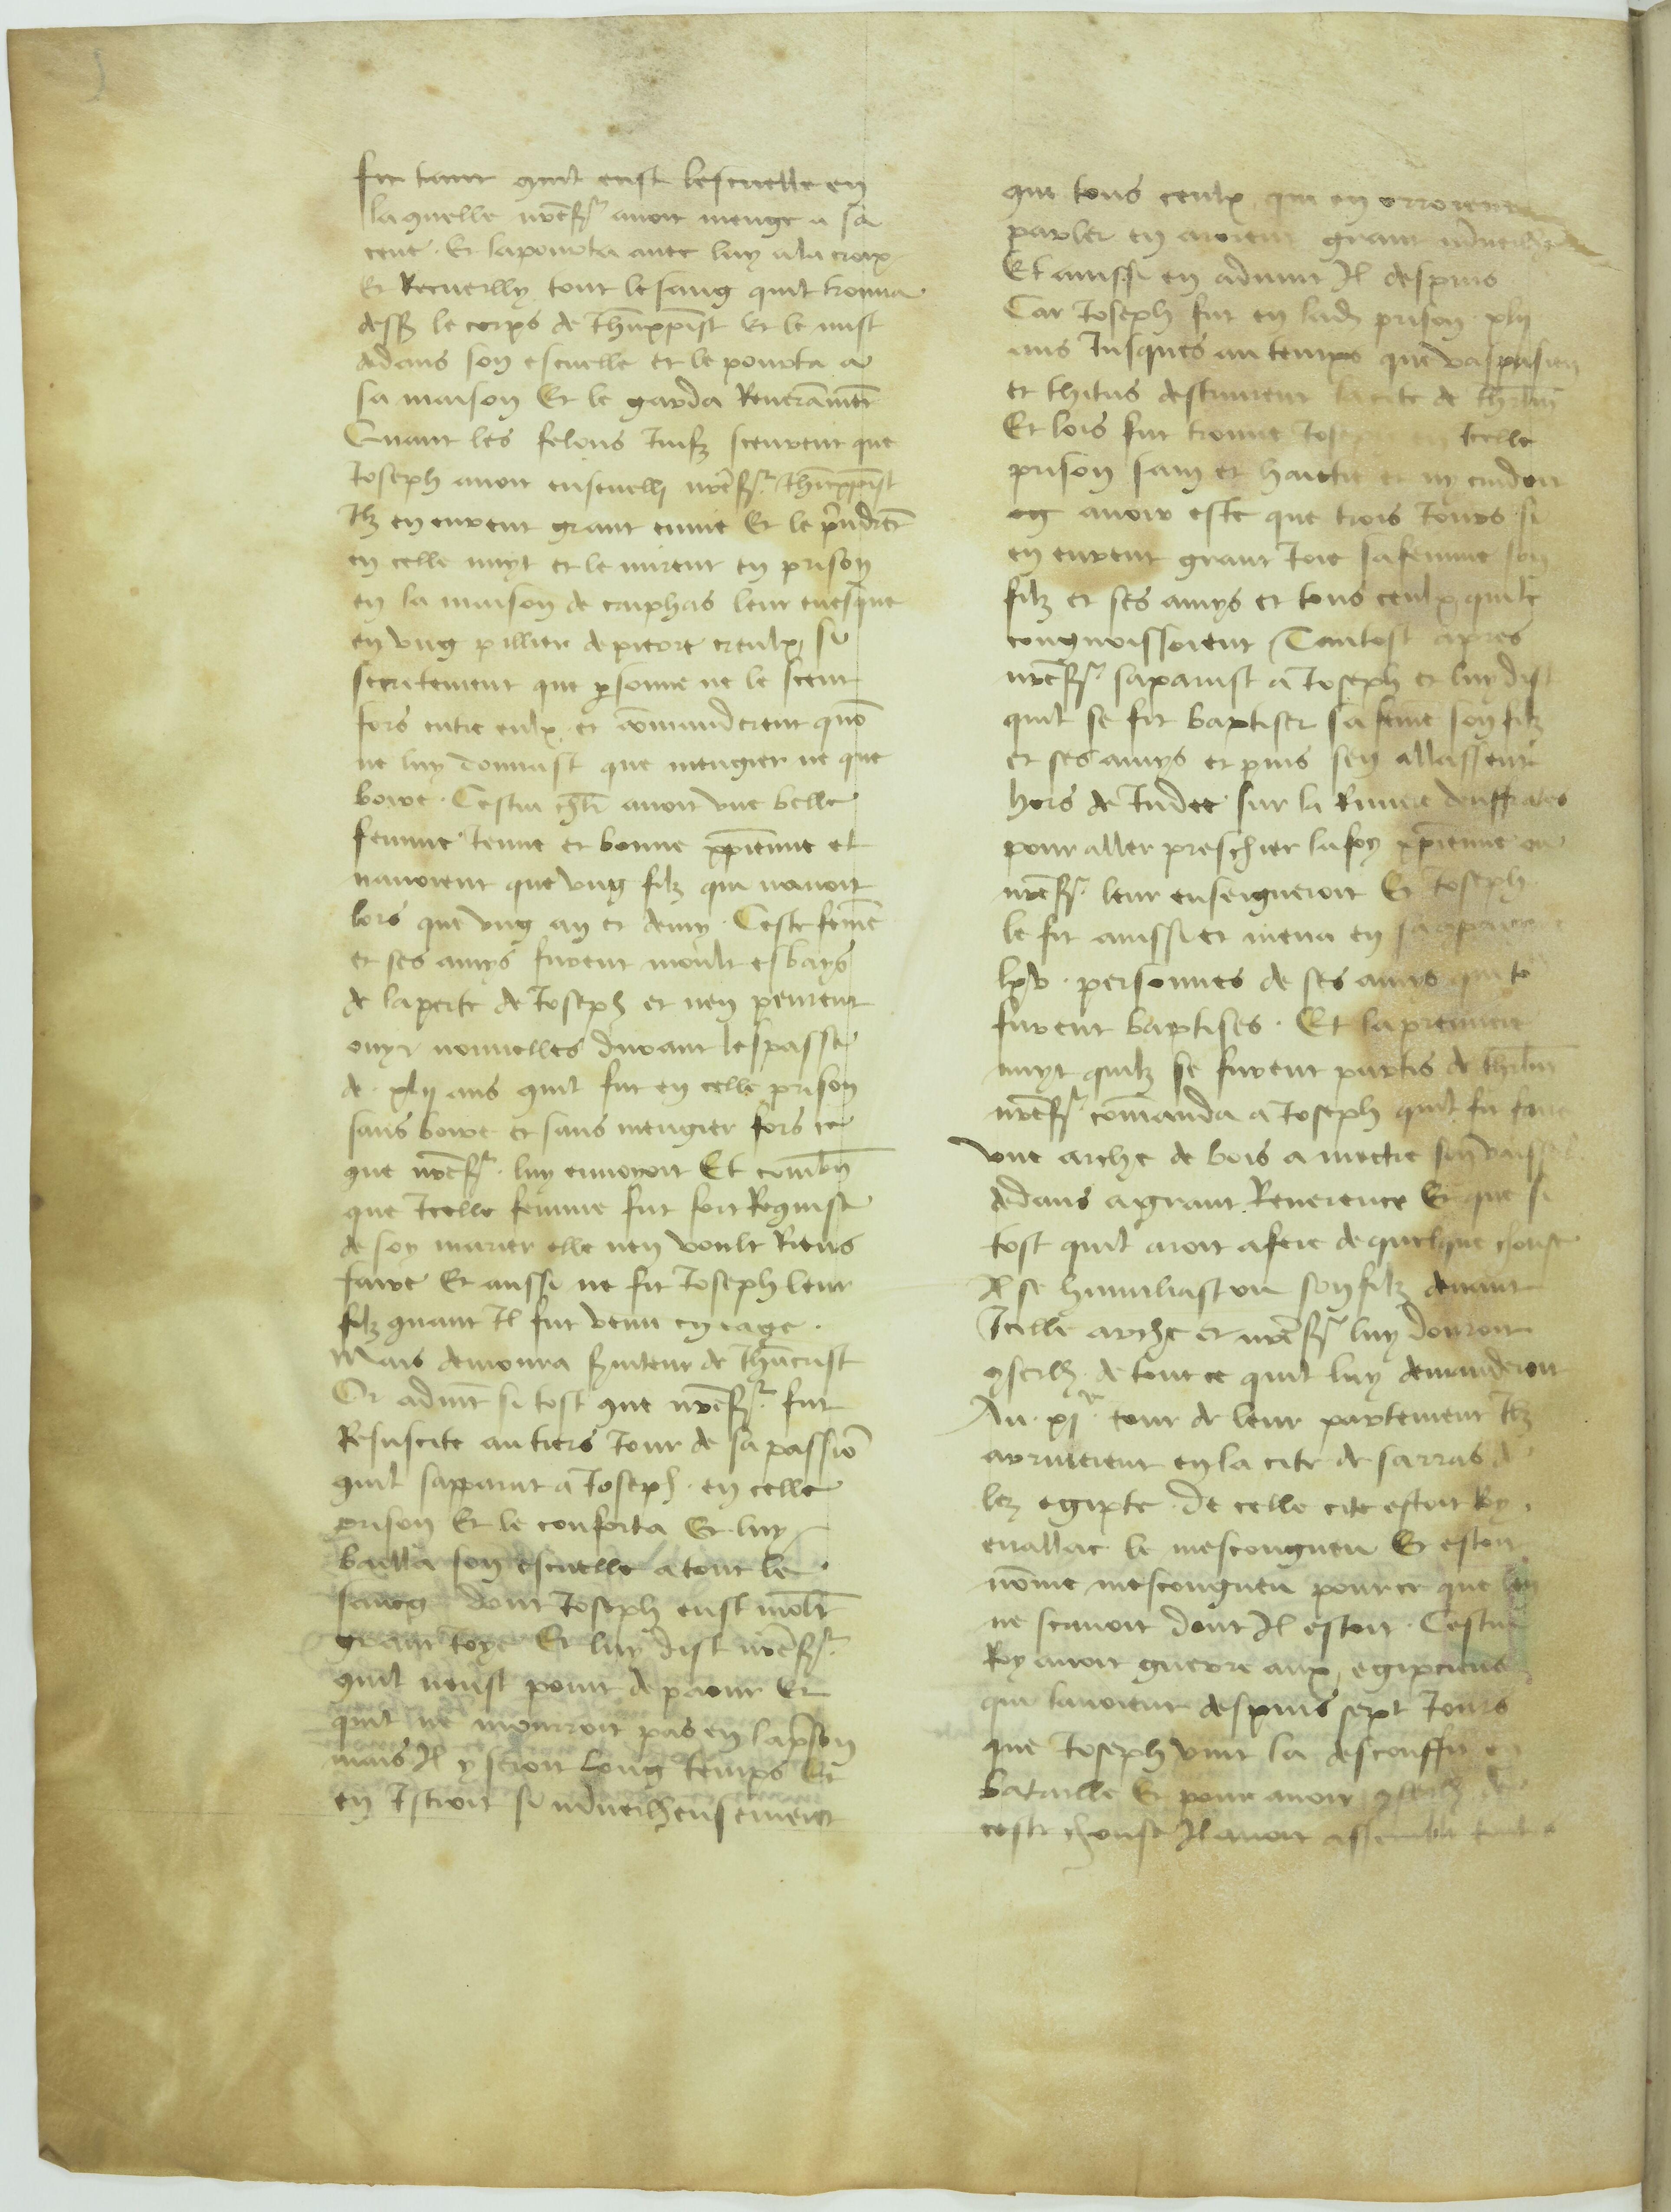 fit tant quil eust lescuelle en
laquelle nre sr avoit menge a sa
cene . Et lapourta avec luy a la croix
Et Recuelly tout le sang quil trouva
dess le corps de Jhuxpist Et le mist
dedans son escuelle et le pourta a
sa maison Et le garda Reveramet
Quant les felons Juifz sceurent que
Joseph avoit ensevelli nre sr Jhuxpist
Ilz en eurent grant envie Et le pridret
en celle nuyt et le mirent en prison
en la maison de cayphas leur evesque
en ung pillier de pierre creulx si
secretement que psonne ne le sceut
fors entre eulx . et comanderent quo
ne luy donnast que mengier ne que
boire . Cestui chlr avoit une belle
femme Jeune et bonne xpienne et
navoient que ung filz qui navoit
lors que ung an et demy . Ceste feme
et ses amys furent moult esbays
de la perte de Joseph et nen peurent
ouyr nouvelles durant lespasse
de . xlij ans quil fut en celle prison
sans boire et sans mengier fors ce
que nre sr . luy envoyoit Et combn
que Icelle femme fut fort Requise
de soy marier elle nen voult Riens
faire Et aussi ne fit Joseph leur
filz quant Il fut venu en eage .
Mais demoura sviteur de Jhucrist
Or advit si tost que nre sr . fut
Resuscite au tiers Jour de sa passio
quil sapparut a Joseph . en celle
prison Et le conforta Et luy
bailla son escuelle a tout le
sang dont Joseph eust molt
grant Joye Et luy dist nre sr
quil neust point de paour Et
quil ne mourroit pas en la pson
mais Il y seroit long temps Et
en Istroit si mveilheusement
que tous ceulx qui en orroient
parler en aroient grant mveilhe
Et aussi en advint Il despuis
Car Joseph fut en lad prison . xlij
ans Jusques au temps que vaspasien
et thitus destruirent la cite de Jhrlm
Et lors fut trouve Joseph en Icelle
prison sain et haictie et ny cuidoit
avoir este que trois Jours si
en eurent grant Joie sa femme son
filz et ses amys et tous ceulx quilz
congnoissoient Tantost apres
nre sr saparust a Joseph et luy dist
quil se fit baptiser sa feme son filz
et ses amys et puis sen allassent
hors de Judee sur la Riviere deuffrates
pour aller preschier la foy xpienne ou
nre sr leur enseigneroit Et Joseph
le fit aussi et mena en sa
lxv . personnes de ses amys qui
furent baptises . Et la premiere
nuyt quilz se furent partis de Jhrlm
nre sr comanda a Joseph quil fit faire
une arche de bois a mectre son
dedans a grant Reverence Et que si
tost quil aroit afere de quelque chouse
Il se humiliast ou son filz devant
Icelle arche et nre sr luy donroit
9seilh de tout ce quil luy demanderoit
Au . xi . Jour de leur partement Ilz
arriverent en la cite de sarras
lez egipte . De celle cite estoit Roy
evallac le mescongneu Et estoit
nome mescongneu pour ce que len
ne scavoit dont Il estoit . Cestui
Roy avoit guerre aux egipciens
qui lavoient despuis sept Jours
que Joseph vint la desconffit en
bataille Et pour avoir 9seilh de
ceste chouse Il avoit assemble